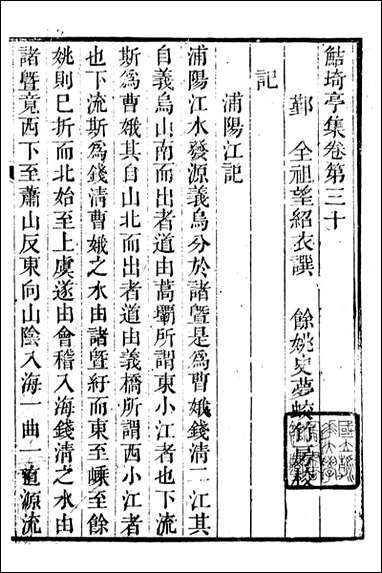 鮚埼亭集卷第三十
鄞 全祖望紹衣譔 餘姚史夢蛟竹房校
記
浦陽江記
浦陽江水發源義烏分於諸暨是爲曹娥錢清二江其
自義烏山南而出者道由蒿壩所謂東小江者也下流
斯爲曹娥其自山北而出者道由義橋所謂西小江者
也下流斯爲錢清曹娥之水由諸暨紆而東至嵊至餘
姚則已折而北始至上虞遂由會稽入海錢清之水由
諸暨竟西下至蕭山反東向山陰入海一曲一直源流